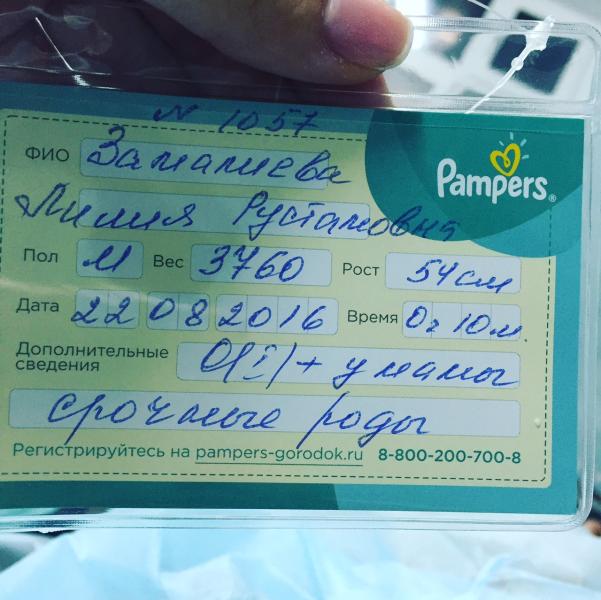 N 1057
ФИО Замалиева
Лилия Рустамовна
Pampers®
Пол М Вес 3760 Рост 54 см
Дата 22 08 2016 Время 0ч 10м.
Дополнительные сведения O(I)+ у мамы
срочные роды
Регистрируйтесь на pampers-gorodok.ru 8-800-200-700-8